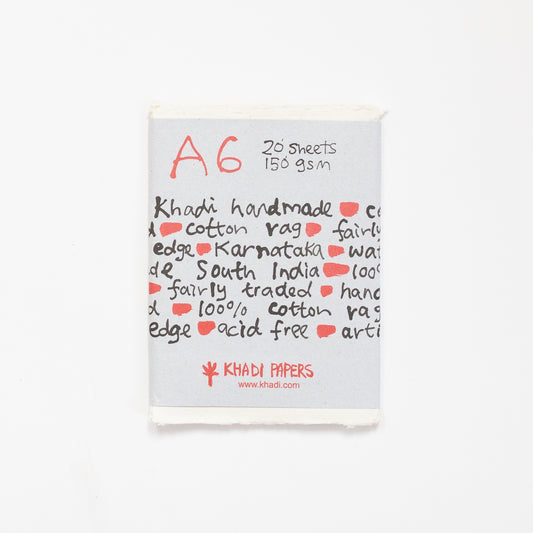 A6 20 sheets
150 gsm
Khadi handmade c
d cotton rag fairly
edge Karnataka wat
de South India 100%
fairly traded hand
d 100% cotton rag
edge acid free arti
KHADI PAPERS
www.khadi.com